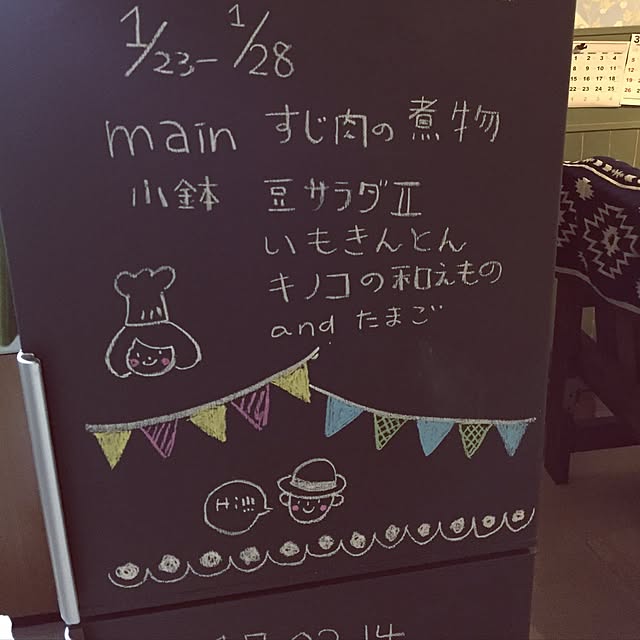 1/23－1/28
main すじ肉の煮物
小鉢 豆サラダⅡ
いもきんとん
キノコの和えもの
and たまご
Hi!!!